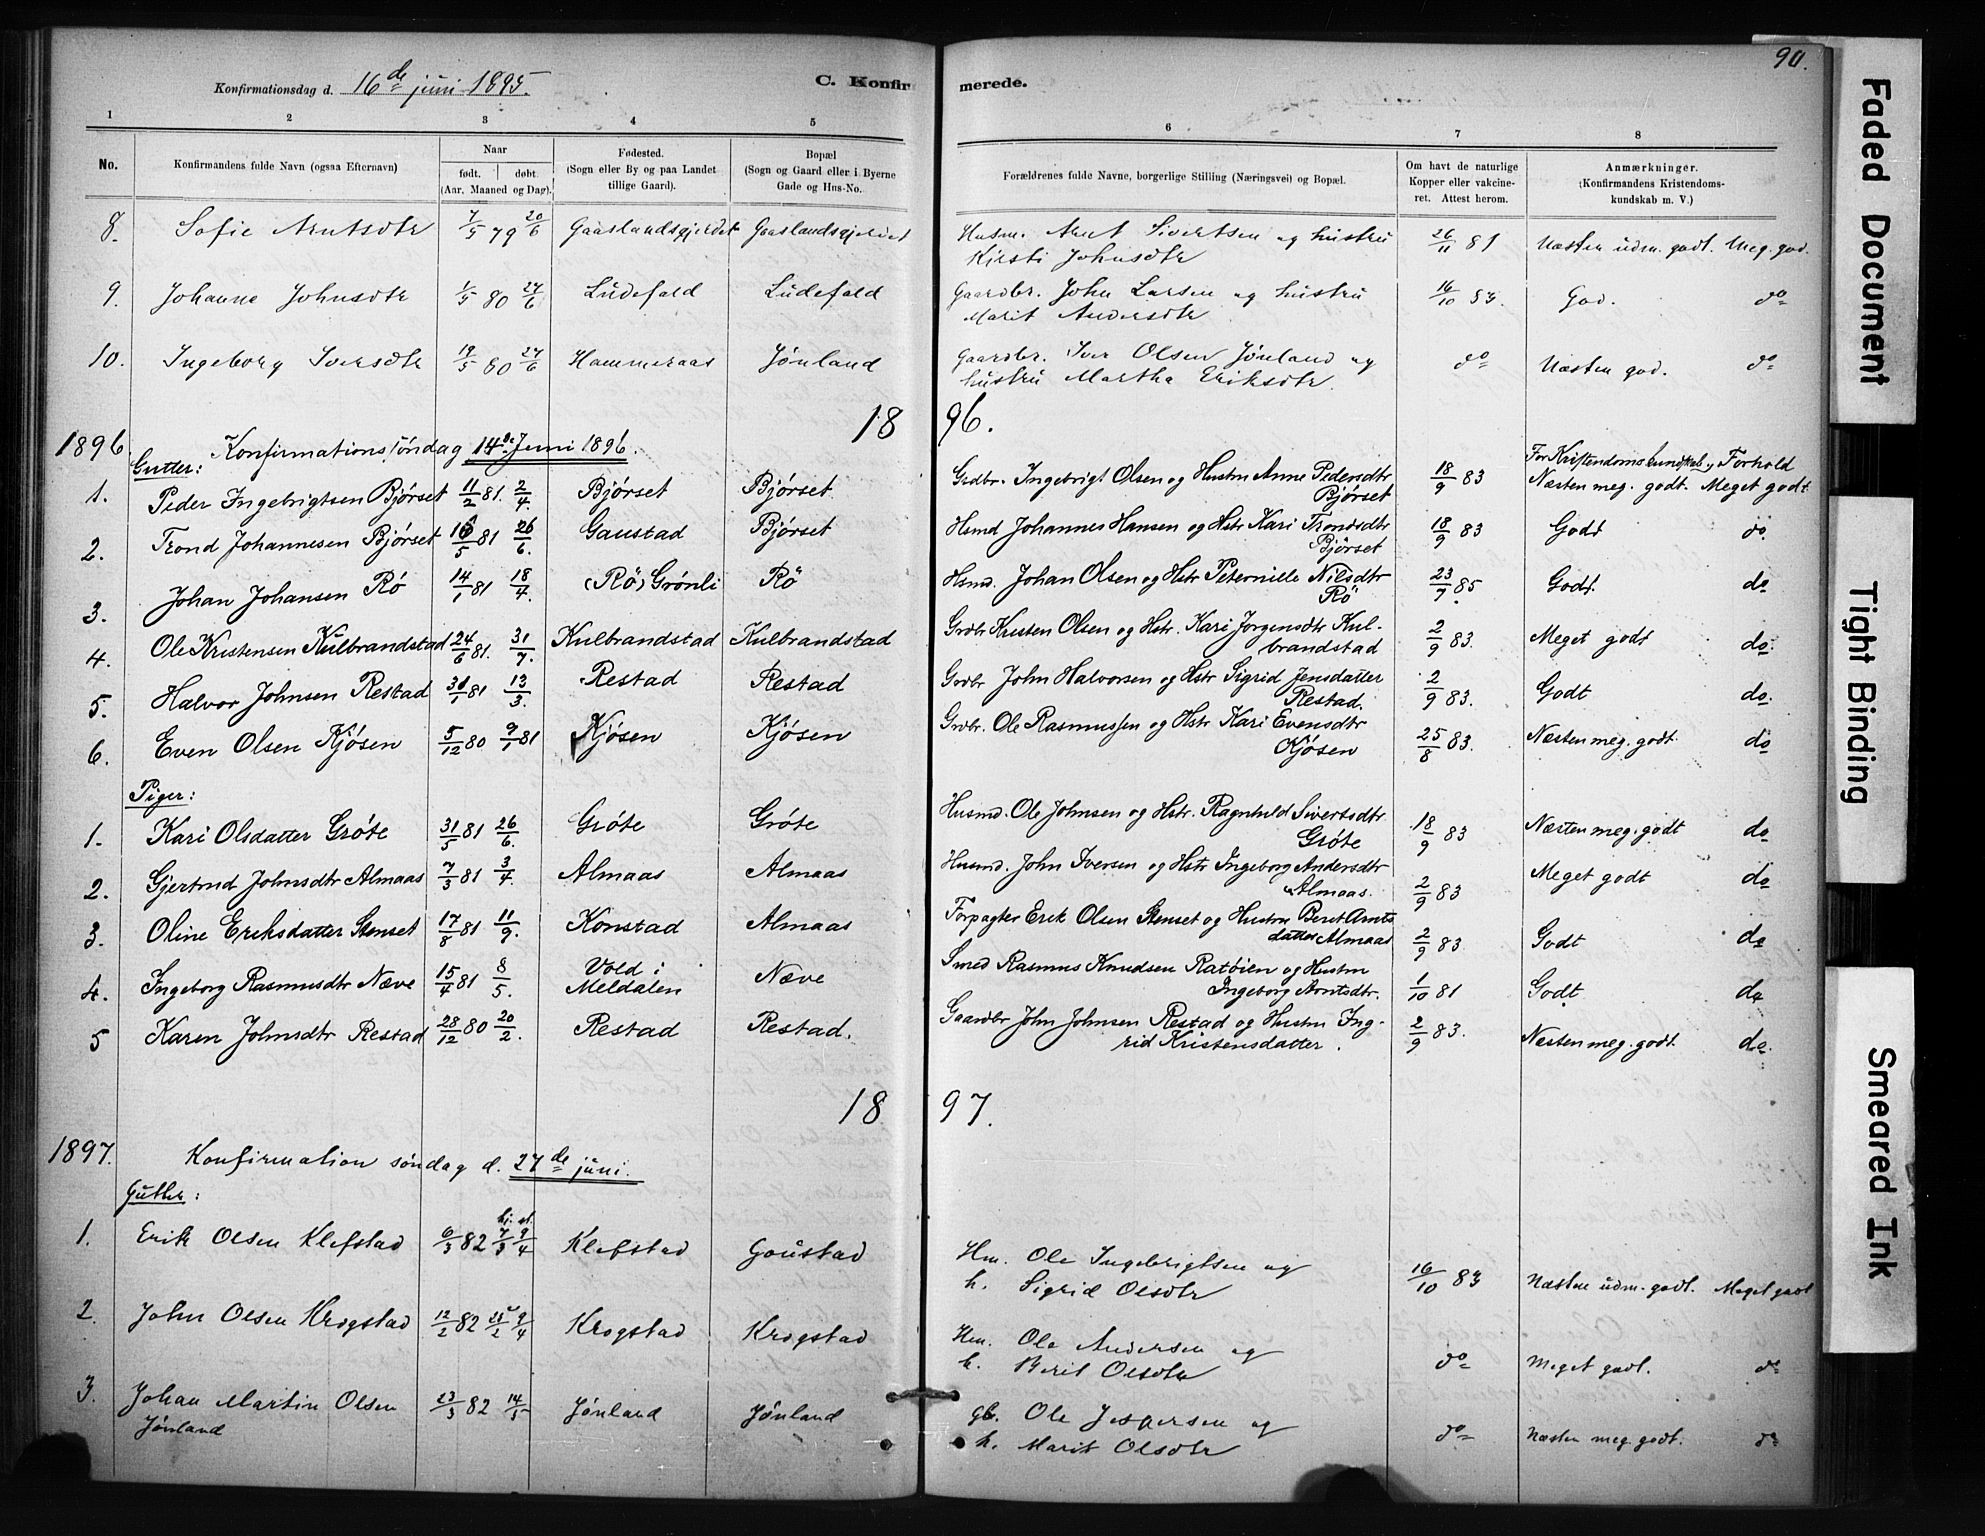 90.
Konfirmationsdag d. 16de juni 1895.
C. Konfirmerede.
1 2 3 4 5 6 7 8
No.
Konfirmandens fulde Navn (ogsaa Efternavn)
Naar
født. døbt.
(Aar, Maaned og Dag).
Fødested.
(Sogn eller By og paa Landet
tillige Gaard).
Bopæl
(Sogn og Gaard eller i Byerne
Gade og Hus-No.
Forældrenes fulde Navne, borgerlige Stilling (Næringsvei) og Bopæl.
Om havt de naturlige
Kopper eller vakcine-
ret. Attest herom.
Anmærkninger.
(Konfirmandens Kristendoms-
kundskab m. V.)
8. Sofie Arntsdtr 7/5 79 20/6 Gaaslandsgjerdet Gaaslandsgjerdet Husm. Arnt Sivertsen og hustru 26/11 81 Næsten udm. godt. Meg. god.
Kirsti Johnsdtr
9. Johanne Johnsdtr 1/5 80 27/6 Ludefald Ludefald Gaardbr. John Larsen og hustru 16/10 83. God. do
Marit Andersdtr
10. Ingeborg Iversdtr 19/5 80 27/6 Hammeraas Jønland Gaardbr. Iver Olsen Jønland og do Næsten god. do
hustru Martha Eriksdtr.
1896.
1896 Konfirmationssøndag 14de Juni 1896.
Gutter:
For Kristendomskundskab, Forhold
1. Peder Ingebrigtsen Bjørset 11/2 81. 2/4. Bjørset Bjørset Grdbr. Ingebrigt Olsen og Hustru Anne Pedersdtr 18/9 83 Næsten meg. godt. Meget godt
Bjørset
2. Trond Johannesen Bjørset 16/5 81 26/6. Gaustad Bjørset Hsmd Johannes Hansen og Hstr Kari Trondsdtr 18/9 83 Godt do.
Bjørset
3. Johan Johansen Rö 14/1 81 18/4. (Rö) Grönli Rö Hsmd. Johan Olsen og Hstr Peternille Nilsdtr 23/7 85. Godt. do
Rö
4. Ole Kristensen Kulbrandstad 24/6 81. 31/7. Kulbrandstad Kulbrandstad Grdbr Kristen Olsen og Hstr. Kari Jørgensdtr Kul- 2/9 83. Meget godt do.
brandstad
5. Halvor Johnsen Restad 31/1 81 13/3. Restad Restad Grdbr John Halvorsen og Hstr Sigrid Jensdatter 2/9 83. Godt do.
Restad.
6. Even Olsen Kjøsen 5/12 80 9/1 81 Kjøsen Kjøsen Grdbr. Ole Rasmussen og Hstr Kari Evensdtr 25/8 83. Næsten meg. godt. do
Kjøsen
Piger:
1. Kari Olsdatter Grøte 31/5 81 26/6. Grøte Grøte Husmd. Ole Johnsen og Hstr. Ragnhild Sivertsdtr. 18/9 83 Næsten meg. godt do
Grøte
2. Gjertrud Johnsdtr Almaas 7/3 81 3/4. Almaas Almaas Husmd. John Iversen og Hstr Ingeborg Andersdtr 2/9 83 Meget godt do
Almaas.
3. Oline Eriksdatter Stenset 17/8 81 11/9. Konstad Almaas Forpagter Erik Olsen Stenset og Hustru Beret Arnts 2/9 83 Godt do
datter Almaas
4. Ingeborg Rasmusdtr Næve 15/4 81 8/5. Vold i Næve Smed Rasmus Knudsen Ratøien og Hustru 1/10 81 Godt do
Meldalen Ingeborg Arntsdtr.
5 Karen Johnsdtr Restad 28/12 80 20/2. Restad Restad. Gaardbr John Johnsen Restad og Hustru Ing- 2/9 83. Næsten meg. godt. do.
rid Kristensdatter.
1897.
1897. Konfirmation søndag d. 27de juni.
Gutter:
1. Erik Olsen Klefstad 6/3 82 7/3 9/4 Klefstad Goustad Hm. Ole Ingebrigtsen og 16/10 83 Næsten udm. godt. Meget godt
h. Sigrid Olsdtr
2. John Olsen Krogstad 12/2 82 9/4 Krogstad Krogstad Hm. Ole Andersen og do Meget godt. do
h. Berit Olsdtr
3. Johan Martin Olsen 23/3 82 14/5 Jønland Jønland gb. Ole Jespersen og do Næsten meg. godt. do
Jønland h. Marit Olsdtr
Faded Document
Tight Binding
Smeared Ink